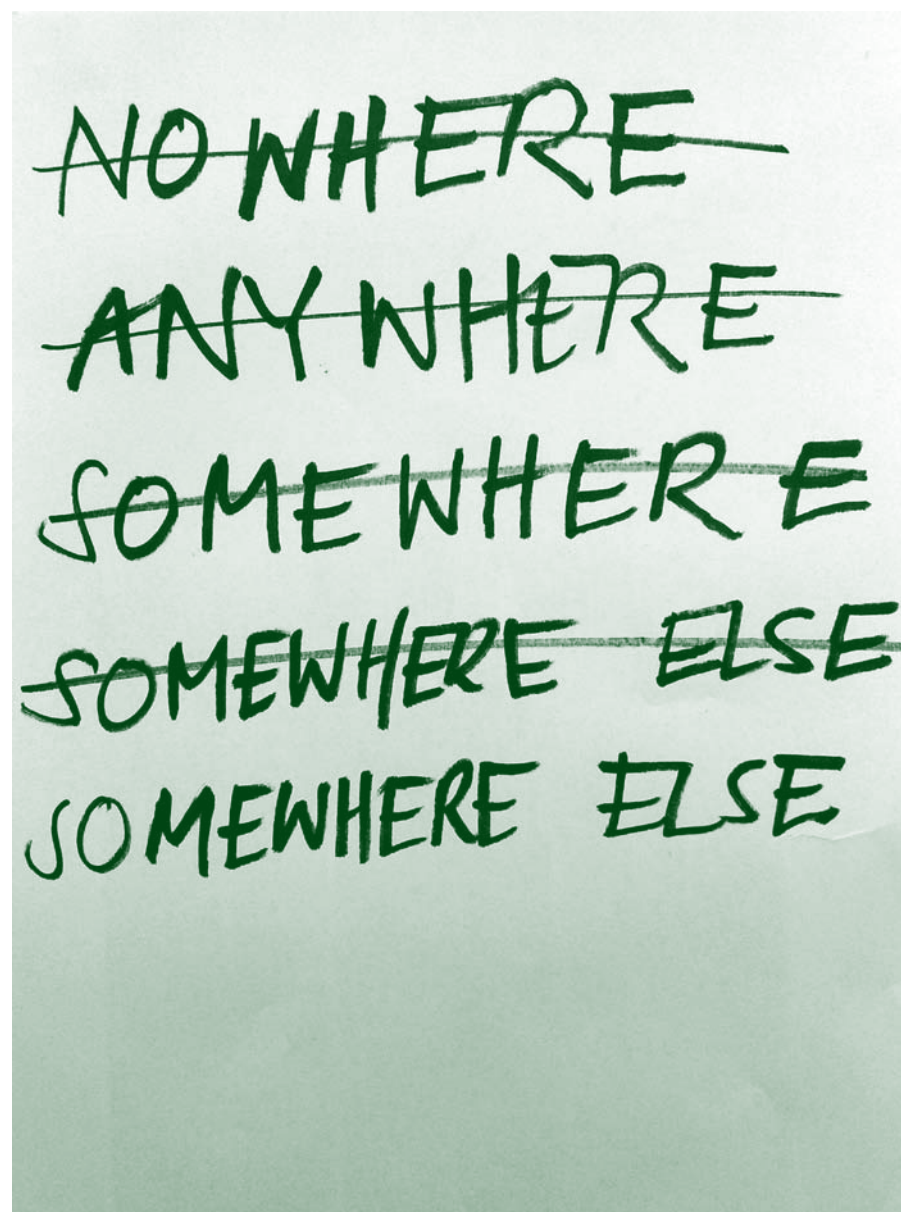 NOWHERE
ANYWHERE
SOMEWHERE
SOMEWHERE ELSE
SOMEWHERE ELSE